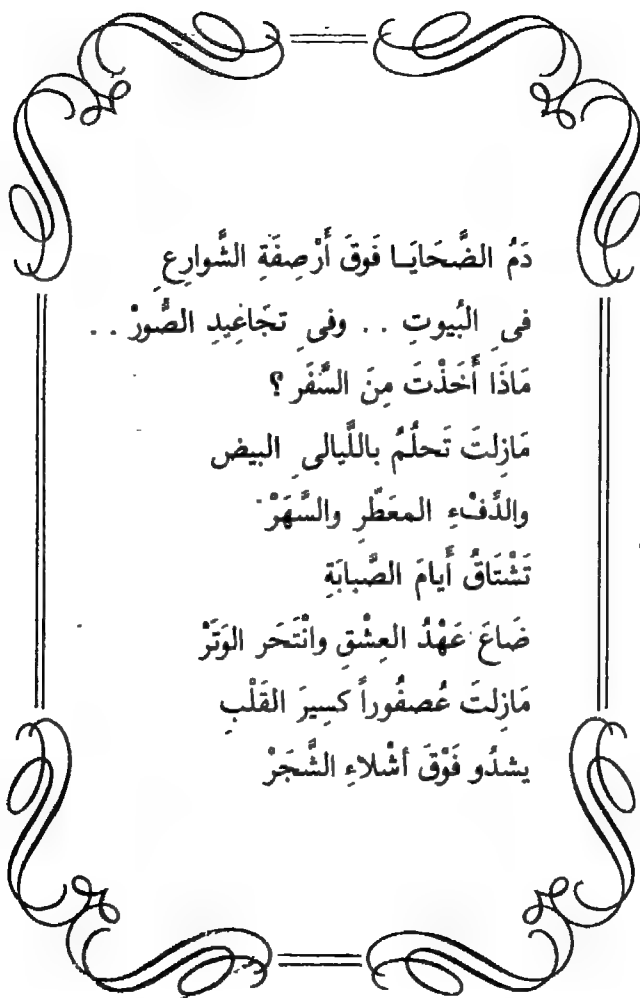 دَمُ الضَّحَايَـا فَوقَ أَرْصِفَةِ الشَّوارِعِ
فى البُيوتِ . . وفى تجَاعِيدِ الصُّورْ . .
مَاذَا أَخَذْتَ مِنَ السَّفَر ؟
مَازِلتَ تَحلُمُ باللَّيالى البيض
والدِّفْءِ المعَطَّرِ والسَّهَرْ
تَشْتَاقُ أَيامَ الصَّبابَةِ
ضَاعَ عَهْدُ العِشْقِ وانْتَحَر الوَتَرْ
مَازِلتَ عُصفُوراً كسِيرَ القَلْبِ
يشدُو فَوْقَ أشْلاءِ الشَّجَرْ